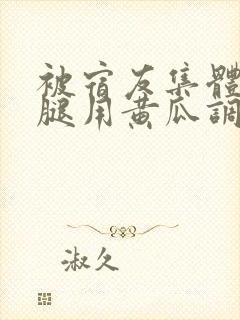 被宿友集體
腿用黃瓜調
淑久